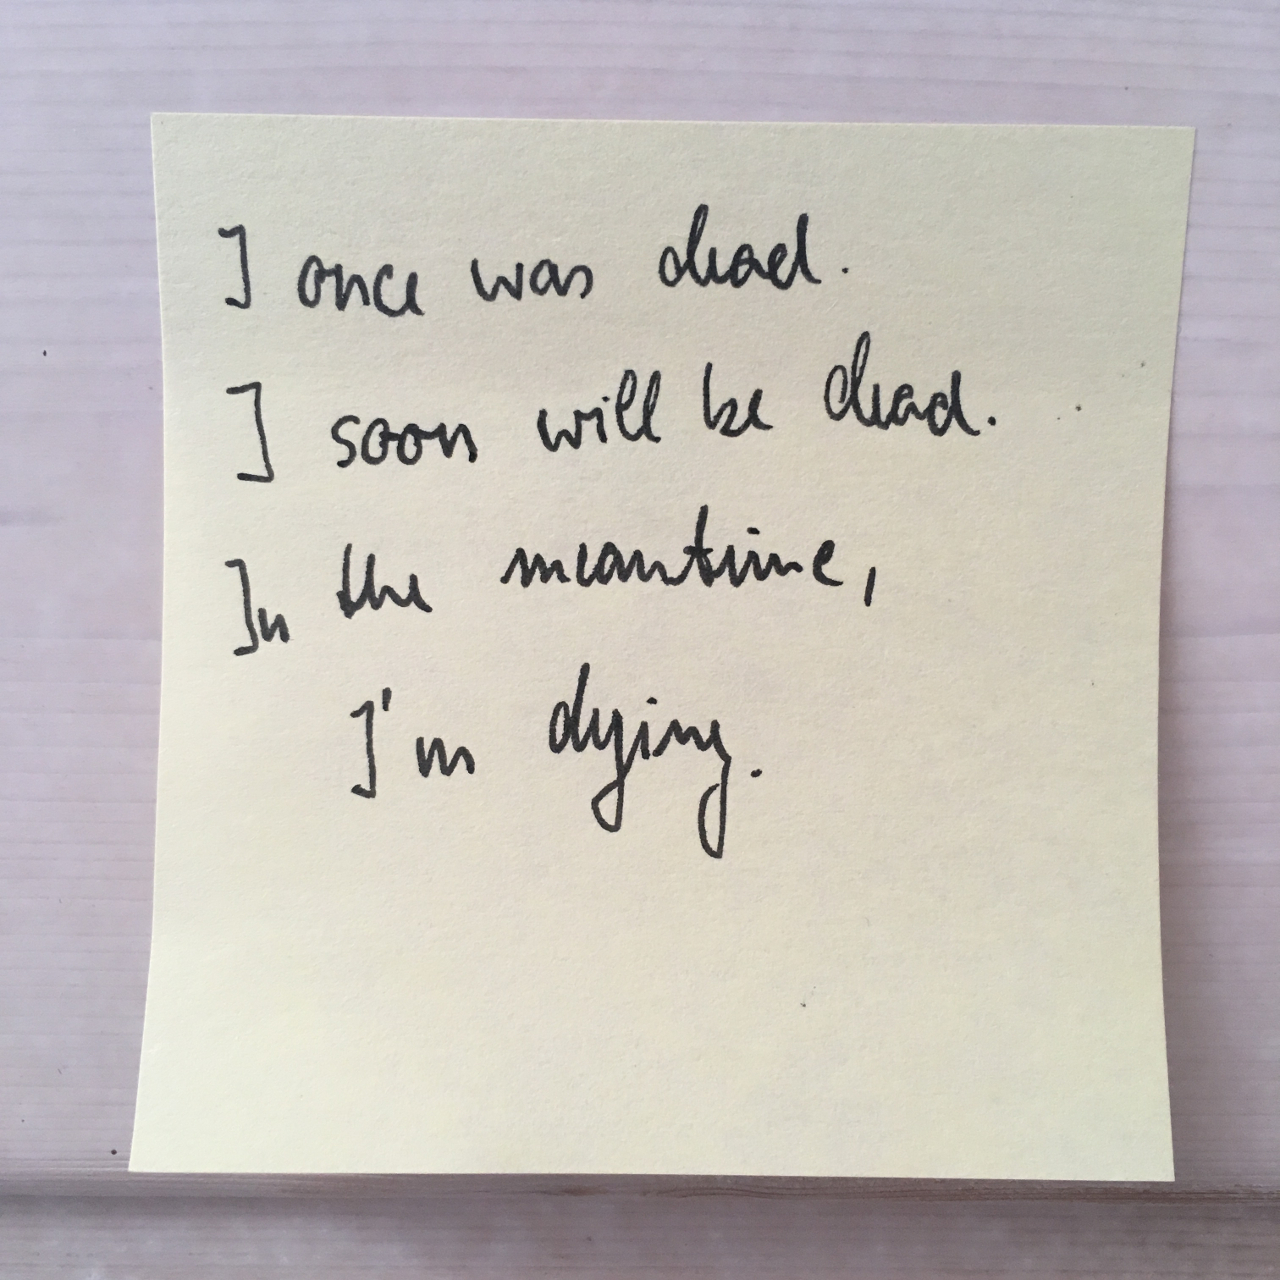 I once was dead.
I soon will be dead.
In the meantime,
I'm dying.